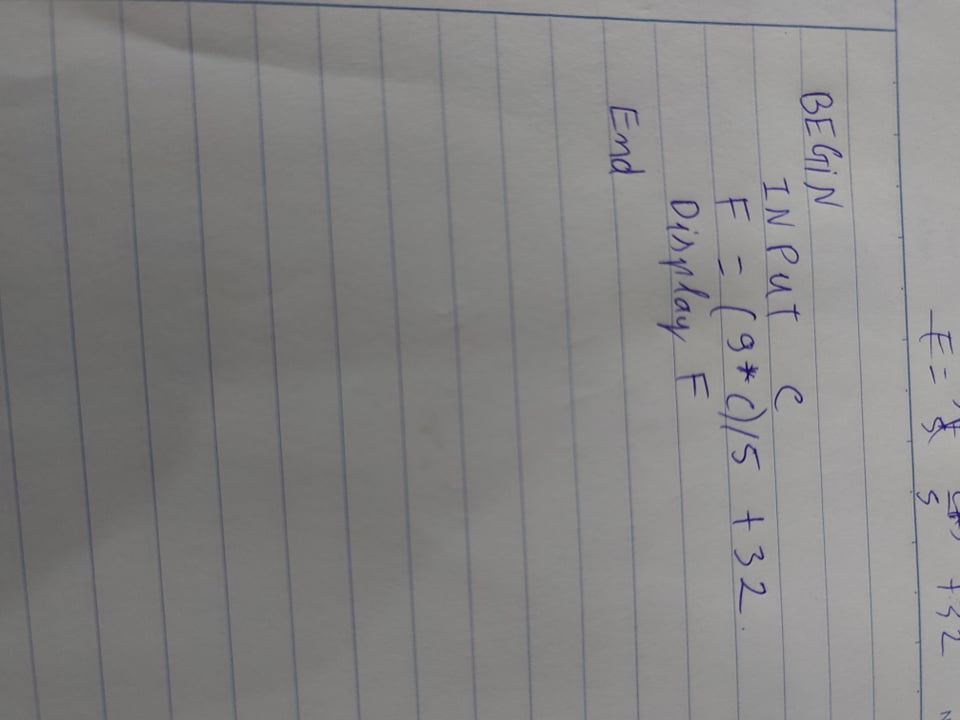 F = 5 +32
BEGIN
INPUT C
F = (9*C)/5 +32.
Display F
End